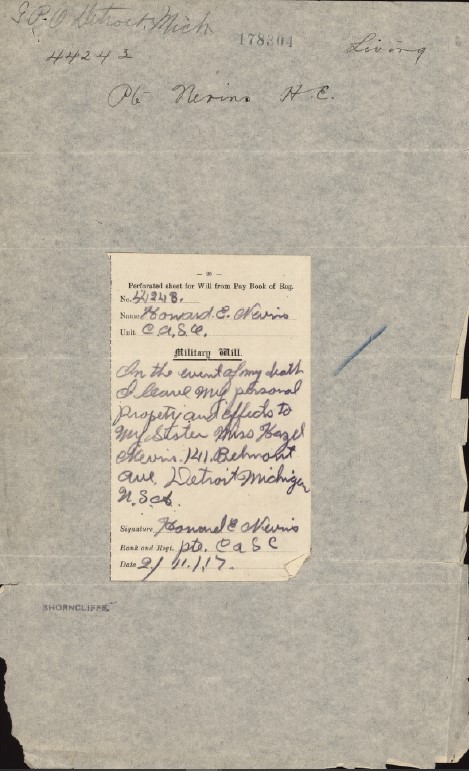 G.P.O Detroit, Mich
178304
Living
44243
Pte Nevins H.E.
- 20 -
Perforated sheet for Will from Pay Book of Reg.
No. 44243.
Name Howard. E. Nevins
Unit C.A.S.C.
Military Will.
In the event of my death
I leave my personal
Propety and effects to
My Sister Miss Hazel
Nevins. 141. Belmont
ave. Detroit Michigan
U.S.A.
Signature Howard E Nevins
Rank and Regt. pte. C A S C
Date 2/11/17.
SHORNCLIFFE